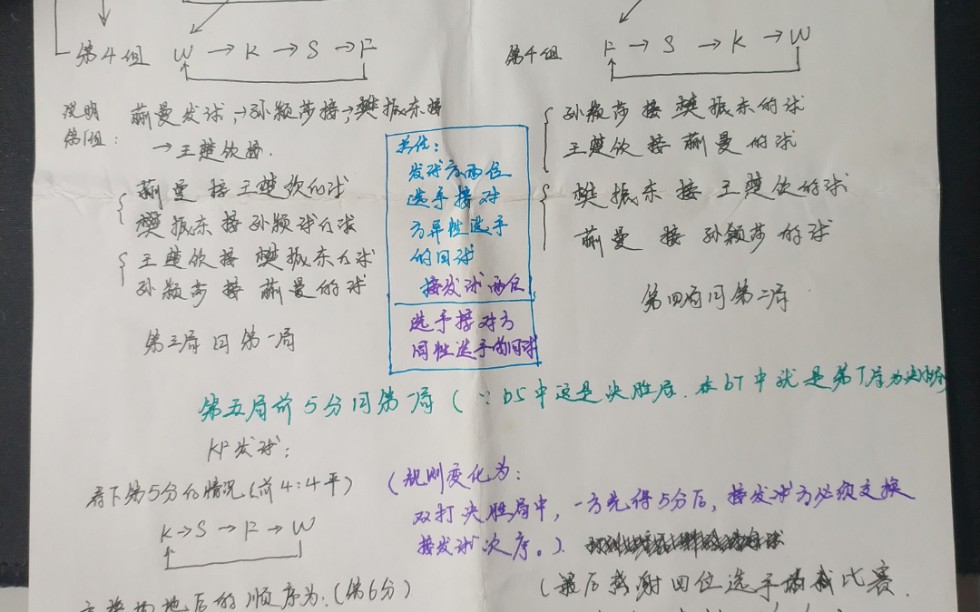 第4组 W → K → S → F
说明
第1组:
蒯曼发球,→孙颖莎接→樊振东接
→王楚钦接.
蒯曼 接王楚钦的球
樊振东接孙颖球的球
王楚钦接 樊振东的球
孙颖莎 接 蒯曼的球
第三局同第一局
发球方两位
选手接对
方异性选手
的回球
接发球两位
选手接对方
同性选手的回球
第4组 F → S → K → W
孙颖莎 接 樊振东的球
王楚钦 接 蒯曼的球
樊振东接 王楚钦的球
蒯曼 接 孙颖莎的球
第四局同第二局
第五局前5分同第一局(∵b5中这是决胜局.在b7中就是第7局为决胜局
KF发球:
看下第5分的情况(前4:4平)
K→S→F→W
(规则变化为:
双打决胜局中,一方先得5分后,接发球方必须交换
接发球次序。)
场地后的顺序为.(第6分)
(最后感谢四位选手 比赛.